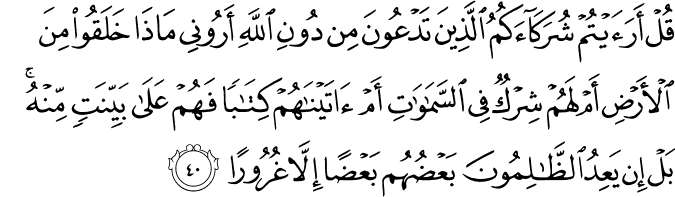 قُلۡ أَرَءَيۡتُمۡ شُرَكَآءَكُمُ ٱلَّذِينَ تَدۡعُونَ مِن دُونِ ٱللَّهِ أَرُونِي مَاذَا خَلَقُواْ مِنَ
ٱلۡأَرۡضِ أَمۡ لَهُمۡ شِرۡكٞ فِي ٱلسَّمَٰوَٰتِ أَمۡ ءَاتَيۡنَٰهُمۡ كِتَٰبٗا فَهُمۡ عَلَىٰ بَيِّنَتٖ مِّنۡهُۚ
بَلۡ إِن يَعِدُ ٱلظَّٰلِمُونَ بَعۡضُهُم بَعۡضًا إِلَّا غُرُورًا ٤٠